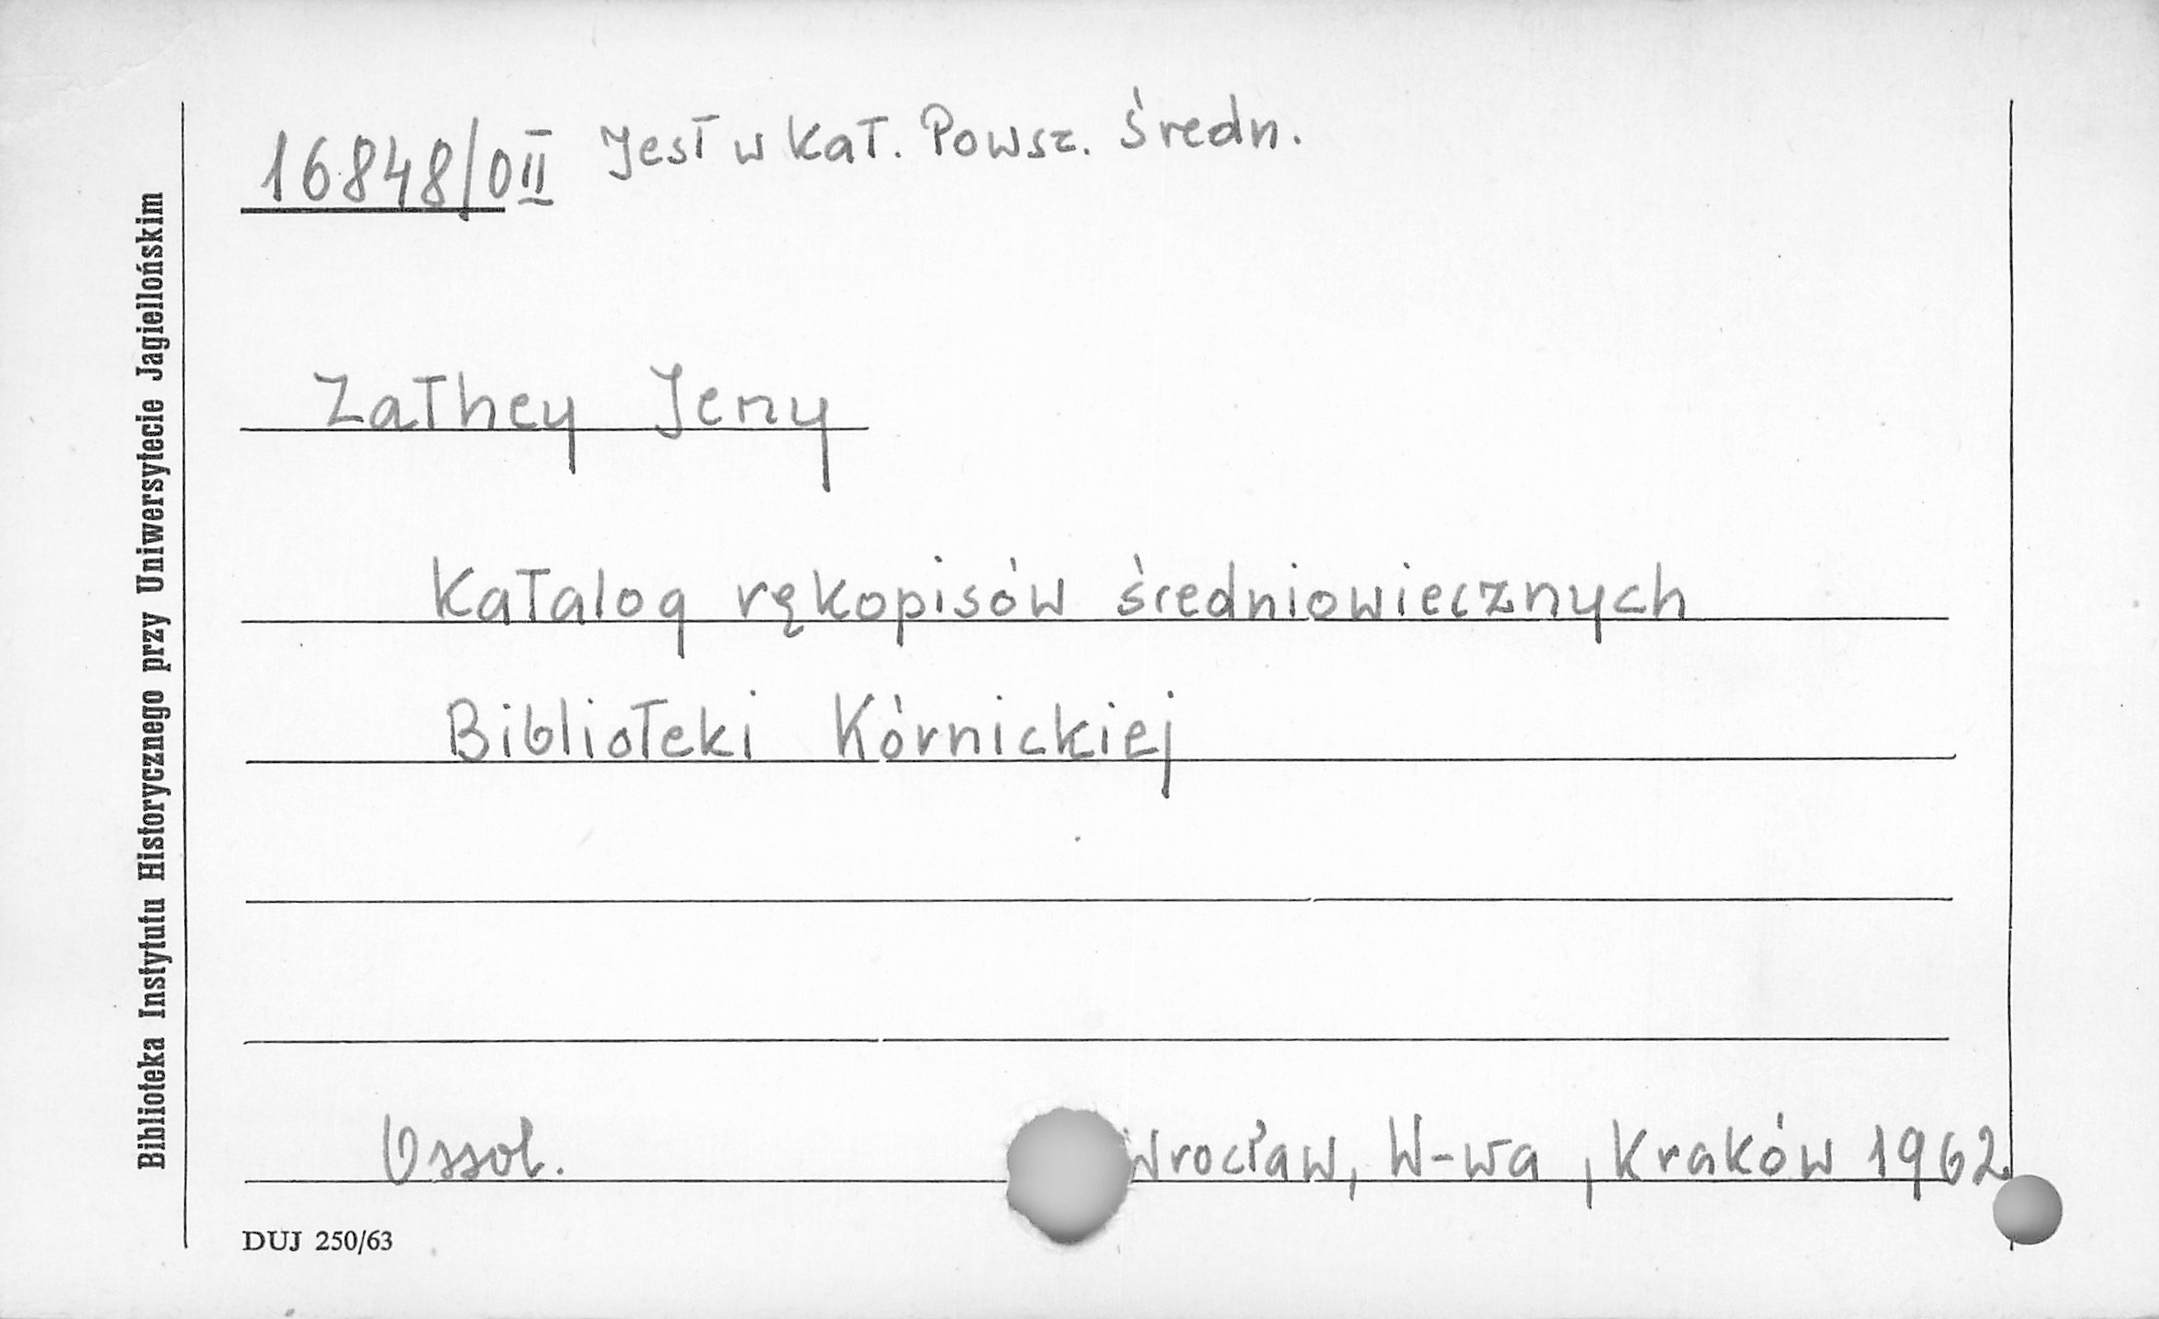 16848/0II Jest w Kat. Powsz. Średn.
Zathey Jerzy
Katalog rękopisów średniowiecznych
Biblioteki Kórnickiej
Ossol. Wrocław, W-wa, Kraków 1962
DUJ 250/63
Biblioteka Instytutu Historycznego przy Uniwersytecie Jagiellońskim